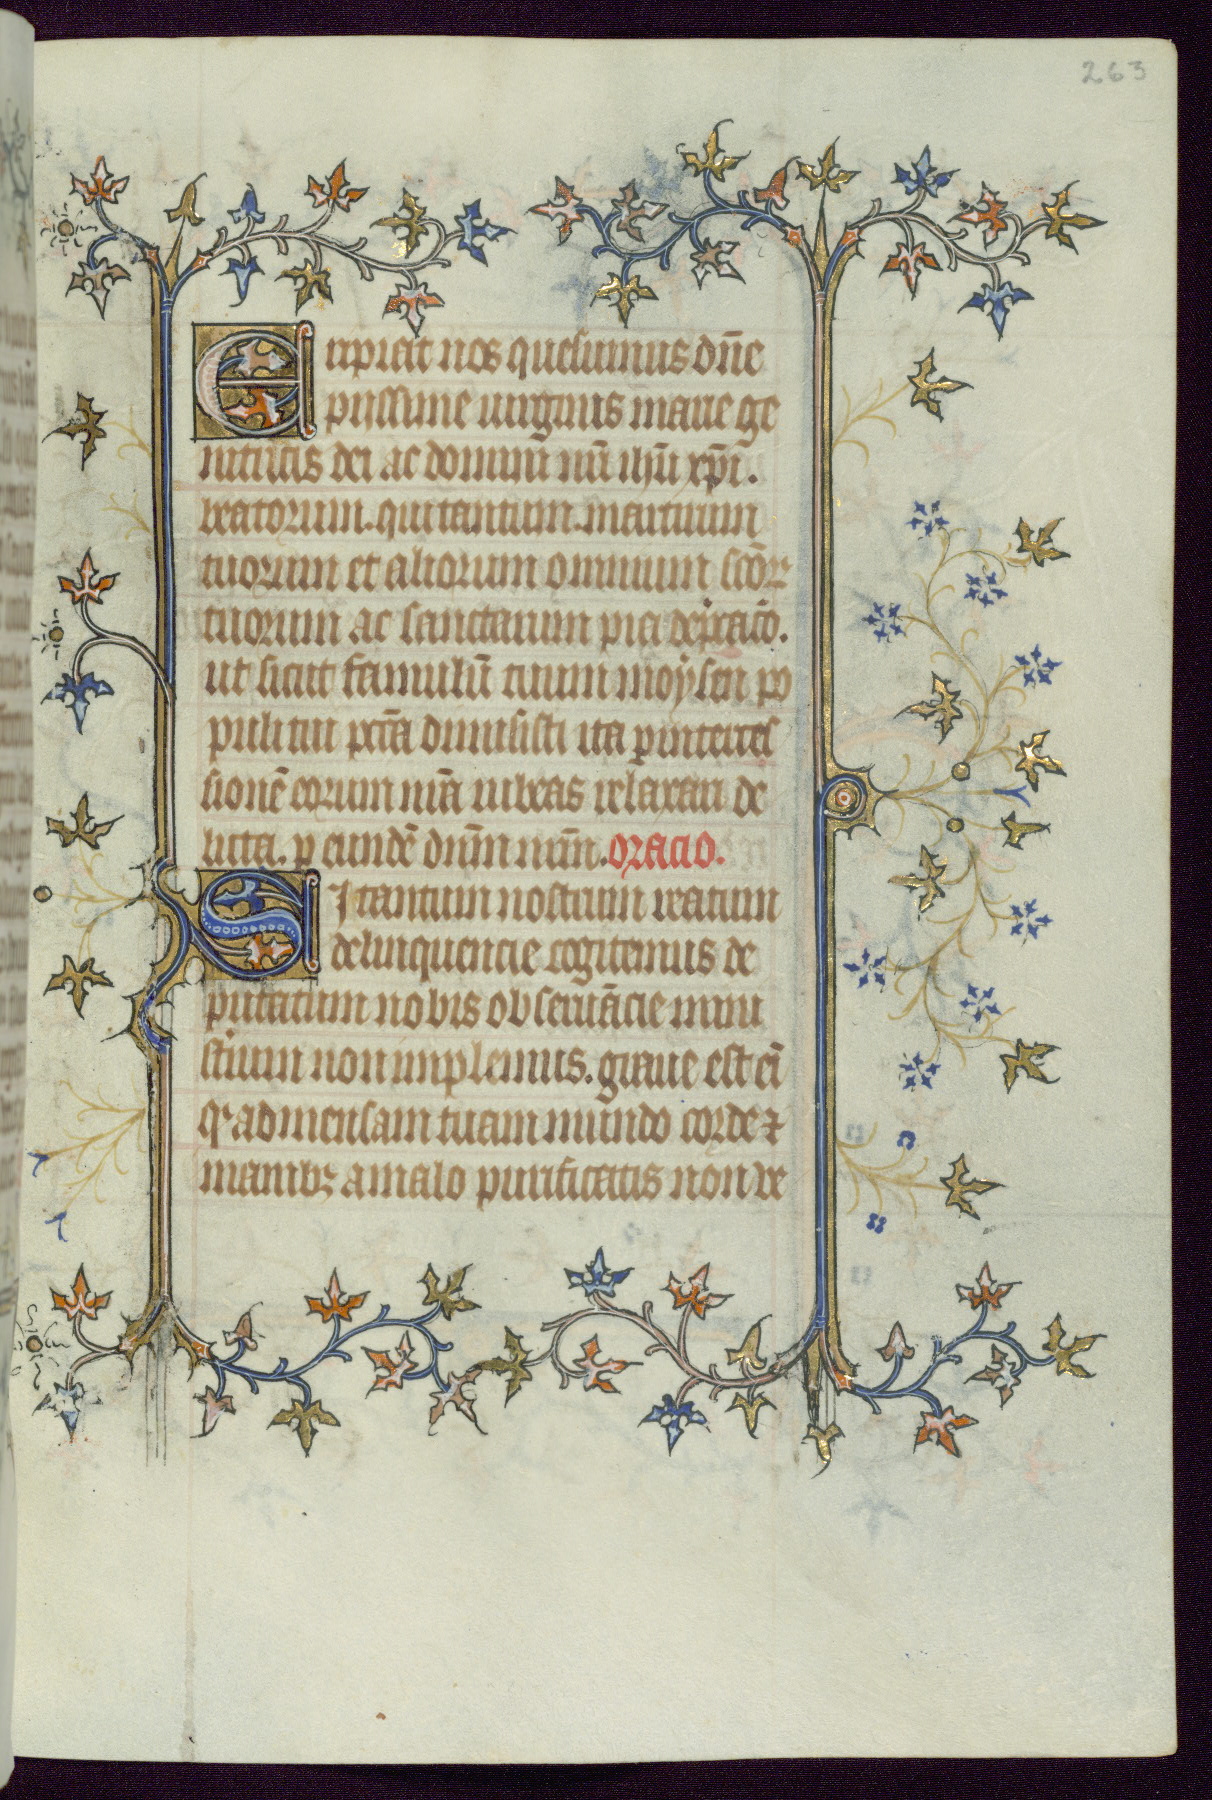 263
Eripiat nos quesumus dn̄e
piissime uirginis marie ge
nitricis dei ac domini nr̄i ihū xp̄i.
beatorum. quirtantum. martirum
tuorum et aliorum omnium scōrꝝ
tuorum ac sanctarum pia dep̄catō.
ut sicut famulū tuum moysen po
puli tui pctā dimisisti ita ꝑ interces
sionē eorum nr̄a iubeas relaxari de
licta. ꝑ eundē dnm̄ nrm̄. oracio.
Si tantum nostrum reatum
delinquencie cogitemus de
putatum nobis obseruācie mini
sterium non implemus. graue est eī
qͥ ad mensam tuam mundo corde ⁊
manibꝫ a malo purificatis non ve